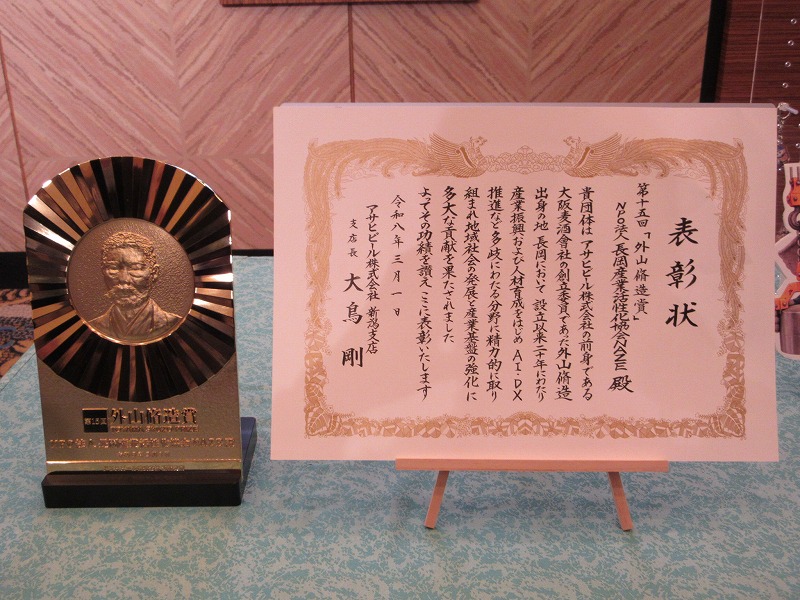 表彰状
第十五回「外山脩造賞」
NPO法人長岡産業活性化協会NAZE 殿
貴団体は アサヒビール株式会社の前身である
大阪麦酒會社の創立委員であった外山脩造
出身の地 長岡において 設立以来二十年にわたり
産業振興および人材育成をはじめ AI・DX
推進など多岐にわたる分野に精力的に取り
組まれ地域社会の発展と産業基盤の強化に
多大な貢献を果たされました
よってその功績を讃え ここに表彰いたします
令和八年三月一日
アサヒビール株式会社 新潟支店
支店長 大鳥 剛
第15回 外山脩造賞